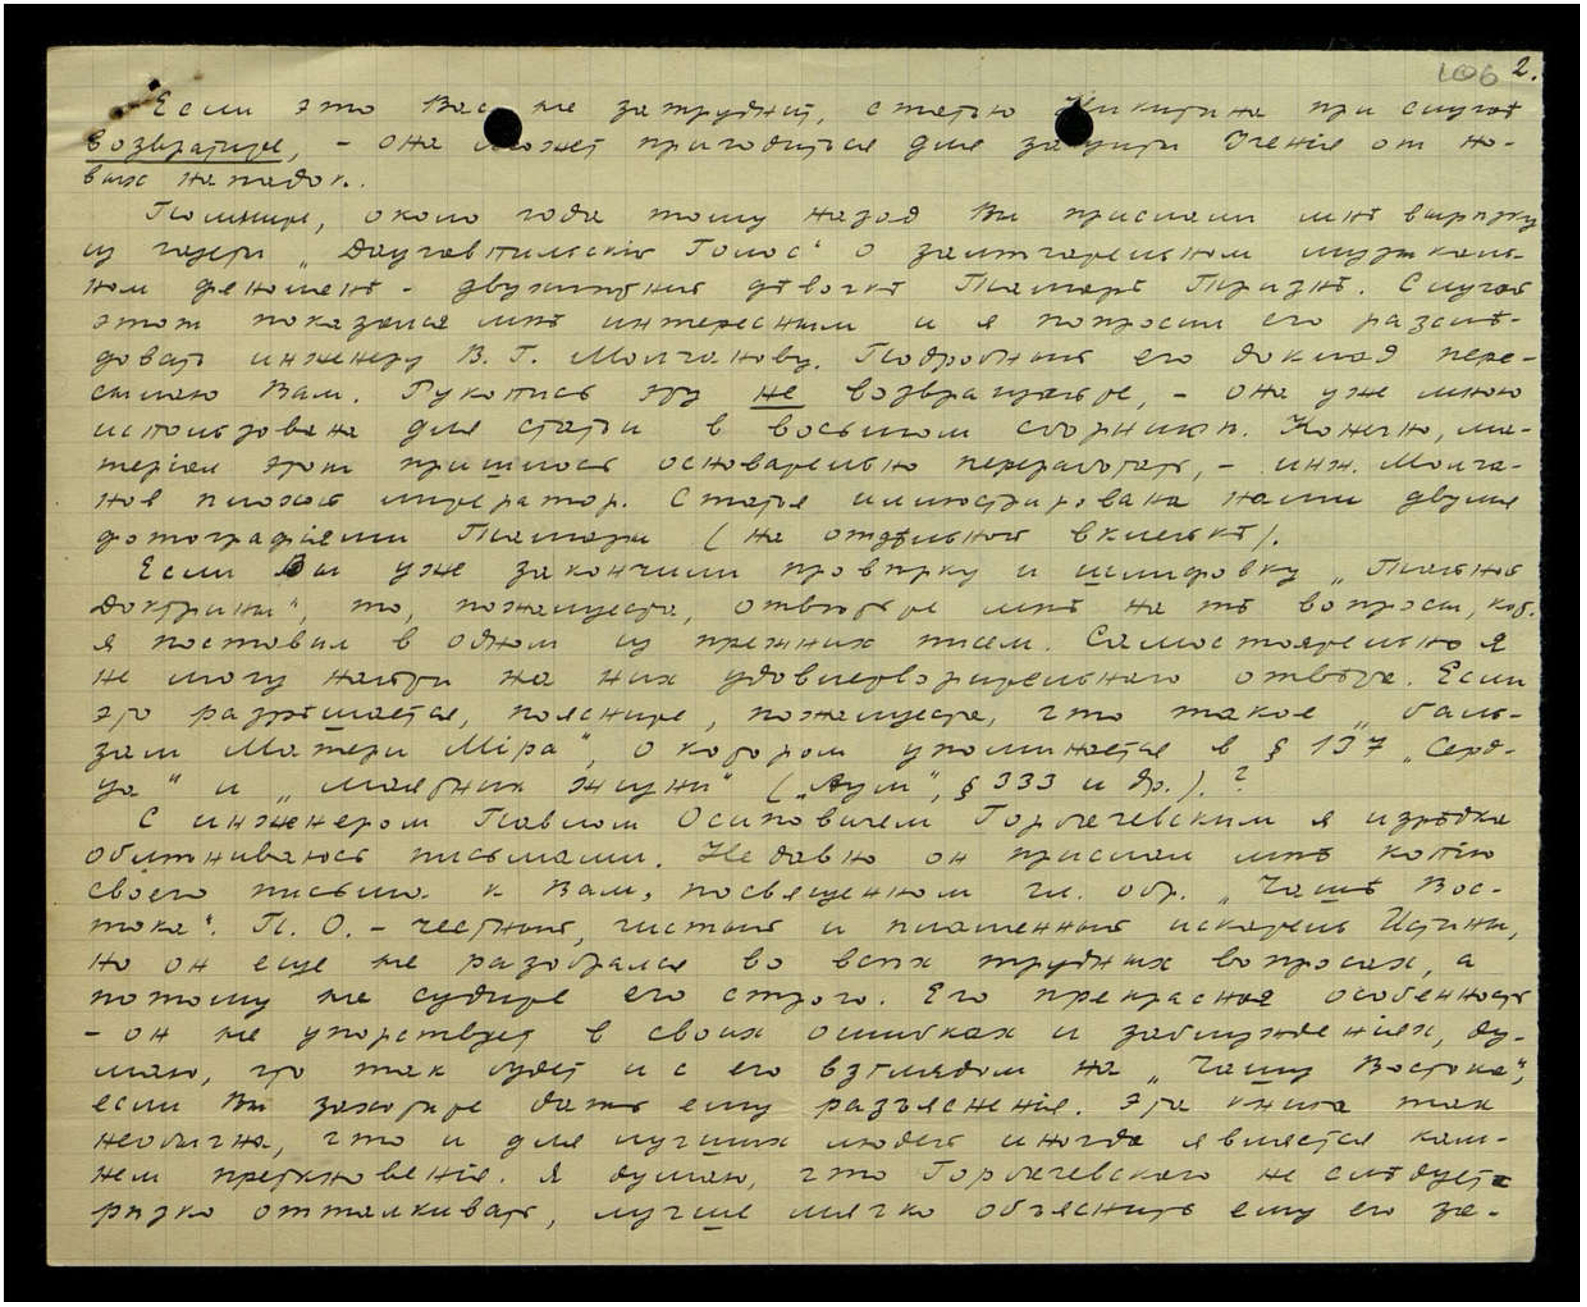 106 2.
Если это Вас не затруднит, статью Никитина при случаѣ
возвратите, - она может пригодиться для защиты Ученія от но-
вых нападок.
Помните, около года тому назад Вы прислали мнѣ вырѣзку
из газеты „Даугавпильскій Голос“ о замѣчательном музыкаль-
ном феноменѣ - двухлѣтней дѣвочкѣ Тамарѣ . Случай
этот показался мнѣ интересным и я попросил его разслѣ-
довать инженеру В. Г. Молчанову. Подробный его доклад пере-
сылаю Вам. Рукопись эту не возвращайте, - она уже мною
использована для статьи в восьмом сборникѣ. Конечно, ма-
теріал этот пришлось основательно переработать, - инж. Молча-
нов плохой литератор. Статья иллюстрирована нами двумя
фотографіями Тамары (на отдѣльной вклейкѣ).
Если Вы уже закончили провѣрку и шлифовку „Тайной
Доктрины“, то, пожалуйста, отвѣтьте мнѣ на тѣ вопросы, кот.
я поставил в одном из прежних писем. Самостоятельно я
не могу найти на них удовлетворительнаго отвѣта. Если
это разрѣшается, поясните, пожалуйста, что такое „баль-
зам Матери Міра“, о котором упоминается в § 137 „Серд-
ца“ и „маятник жизни“ („Аум“, § 333 и др.).?
С инженером Павлом Осиповичем Горбачевским я изрѣдка
обмѣниваюсь письмами. Недавно он прислал мнѣ копію
своего письма к Вам, посвященном гл. обр. „Чашѣ Вос-
тока“. П. О. - честный, чистый и пламенный искатель Истины,
но он еще не разобрался во всѣх трудных вопросах, а
потому не судите его строго. Его прекрасная особенность
- он не упорствует в своих ошибках и заблужденіях, ду-
маю, что так будет и с его взглядом на „Чашу Востока“,
если Вы захотите дать ему разъясненіе. Эта книга так
необычна, что и для лучших людей иногда является кам-
нем преткновенія. Я думаю, что Горбачевскаго не слѣдует
рѣзко отталкивать, лучше мягко объяснить ему его за-